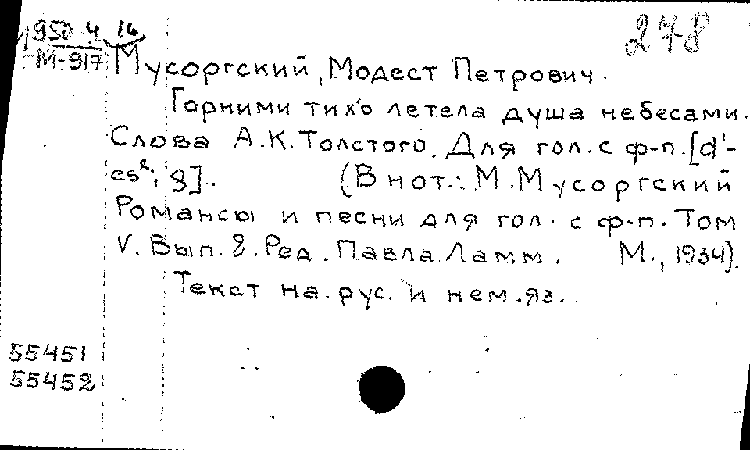 950 4 16
М-917
278
Мусоргский, Модест Петрович.
Горними тихо летела душа небесами.
Слова А.К.Толстого. Для гол. с ф-п. [d'-
es²; g]. (В нот.: М.Мусоргский
Романсы и песни для гол. с ф-п. Том
V. Вып. 8. Ред. Павла Ламм. М., 1934).
Текст на рус. и нем. яз.
55451
55452